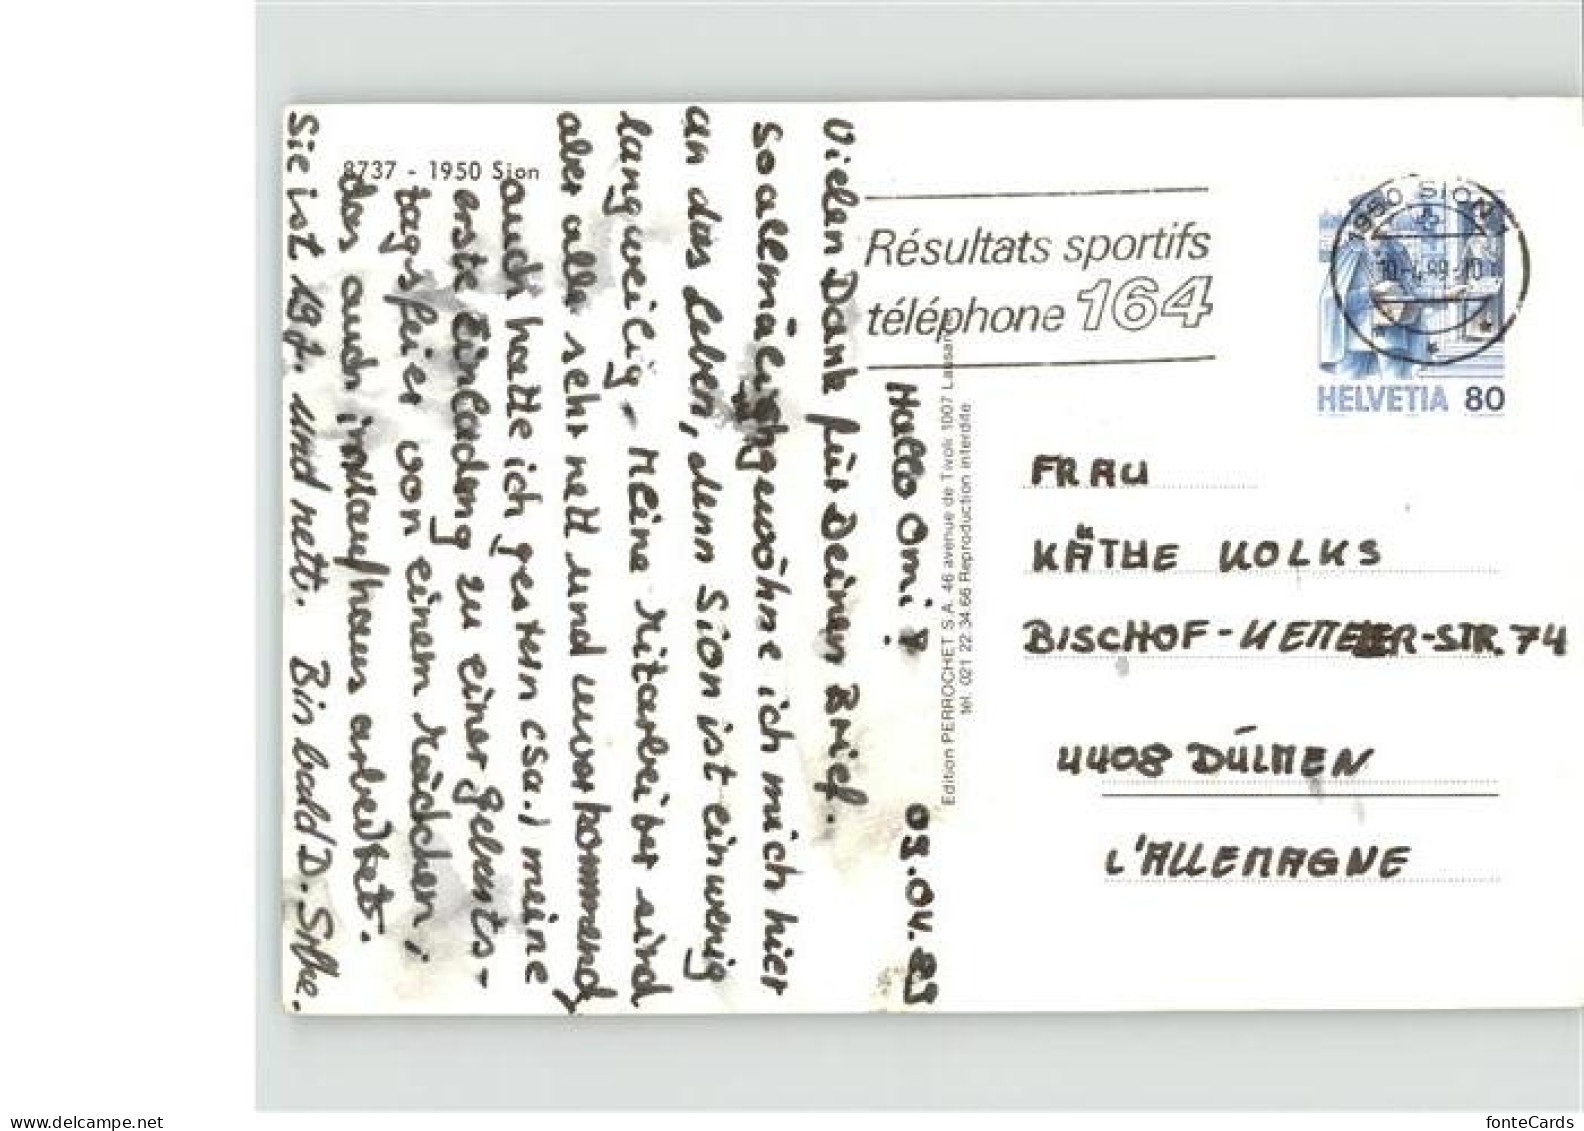 8737 - 1950 Sion
Hallo Omi! 09.04.89
Vielen Dank für Deinen Brief.
So allmählich gewöhne ich mich hier
an das Leben, denn Sion ist ein wenig
langweilig - Meine Mitarbeiter sind
aber alle sehr nett und zuvorkommend,
auch hatte ich gestern (Sa.) meine
erste Einladung zu einer Geburts-
tagsfeier von einem Mädchen,
das auch im Kaufhaus arbeitet.
Sie ist 19 J. und nett. Bis bald D.
Edition PERROCHET S.A. 46 avenue de Tivoli 1007
tél. 021 22 34 66 Reproduction interdite
Résultats sportifs
téléphone 164
1950 SION
HELVETIA 80
FRAU
KÄTHE KOLKS
BISCHOF- -STR. 74
4408 DÜLMEN
L'ALLEMAGNE
www.delcampe.net
fonteCards